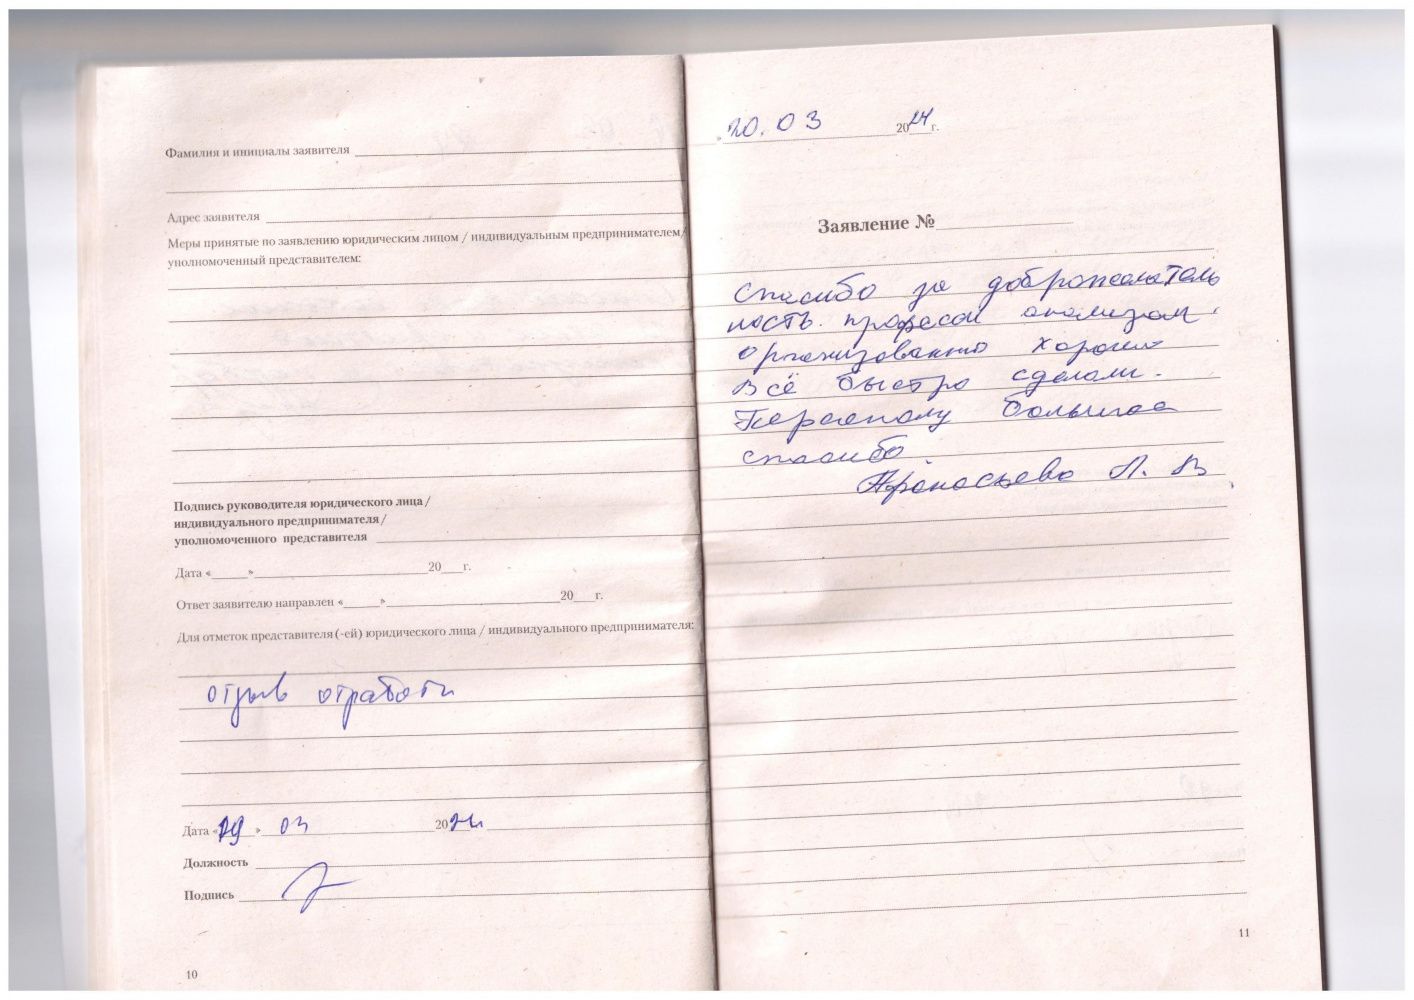 Фамилия и инициалы заявителя
Адрес заявителя
Меры принятые по заявлению юридическим лицом / индивидуальным предпринимателем/
уполномоченный представителем:
Подпись руководителя юридического лица /
индивидуального предпринимателя /
уполномоченного представителя
Дата «____»____________20___г.
Ответ заявителю направлен «____»____________20___г.
Для отметок представителя (-ей) юридического лица / индивидуального предпринимателя:
отзыв
Дата « » 03 20
Должность
Подпись
10
20.03 2024 г.
Заявление №
Спасибо за доброжелатель
ность.
организованно хорошо
Всё быстро сделали.
Персоналу большое
спасибо.
Афонасьева Л. В
11